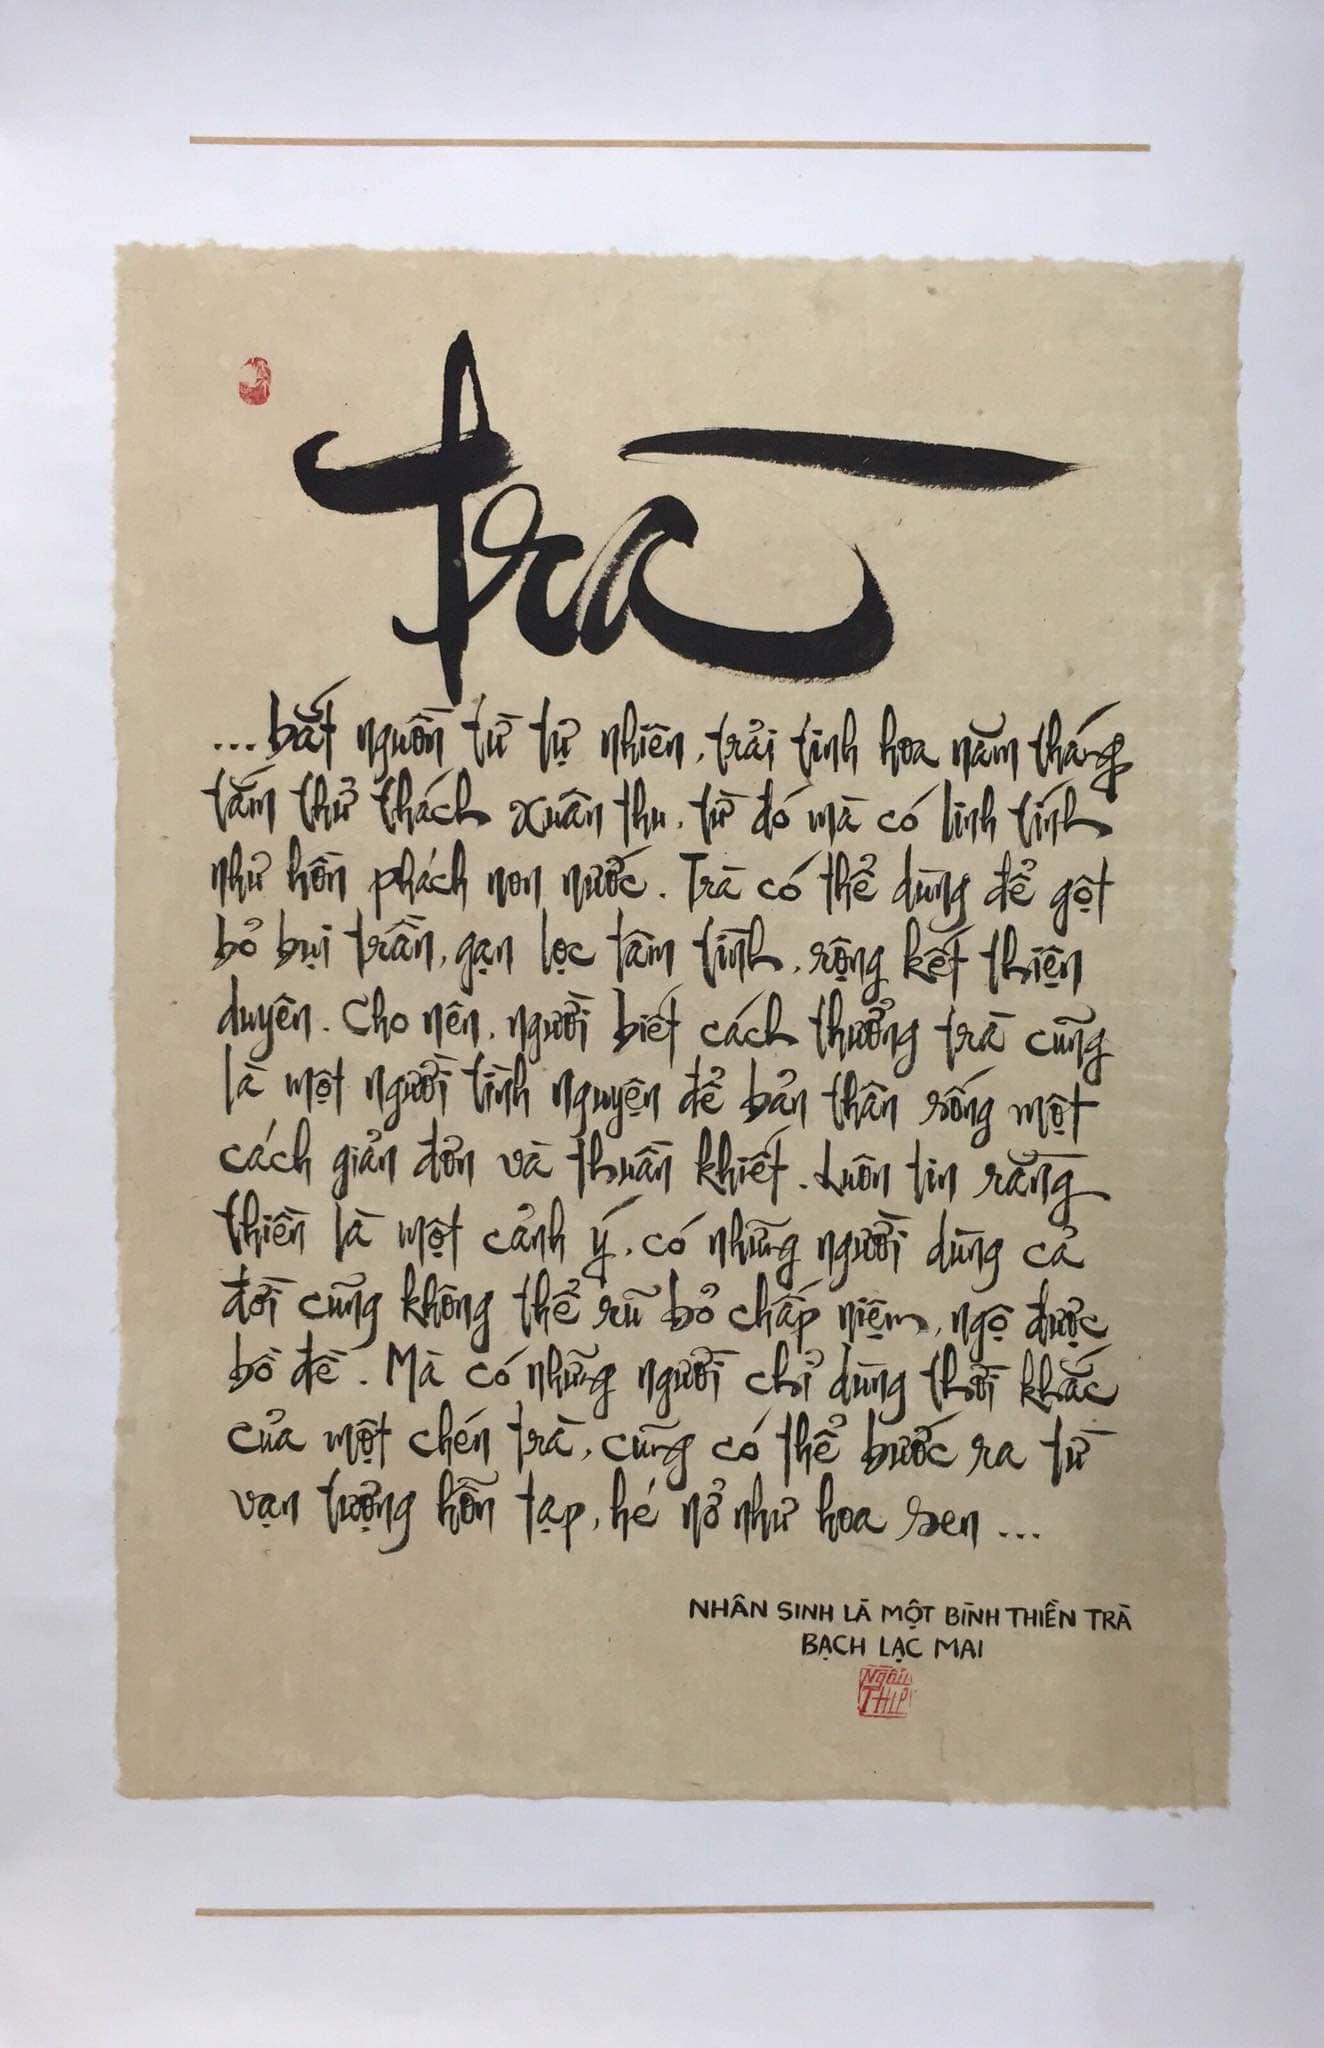 Trà
...bắt nguồn từ tự nhiên, trải tinh hoa năm tháng
tắm thử thách xuân thu, từ đó mà có linh tính
như hồn phách non nước. Trà có thể dùng để gột
bỏ bụi trần, gạn lọc tâm tình, rộng kết thiện
duyên. Cho nên, người biết cách thưởng trà cũng
là một người tình nguyện để bản thân sống một
cách giản đơn và thuần khiết. Luôn tin rằng
thiền là một cảnh ý, có những người dùng cả
đời cũng không thể rũ bỏ chấp niệm, ngộ được
bồ đề. Mà có những người chỉ dùng thời khắc
của một chén trà, cũng có thể bước ra từ
vạn tượng hỗn tạp, hé nở như hoa sen ...
NHÂN SINH LÀ MỘT BÌNH THIỀN TRÀ
BẠCH LẠC MAI